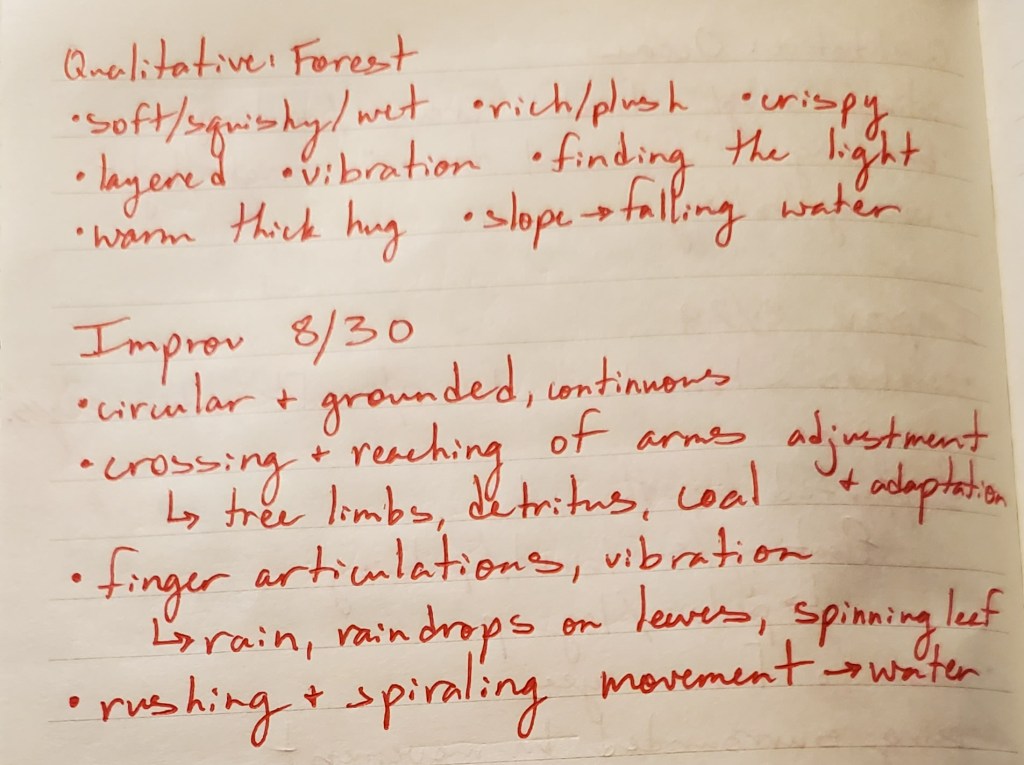 Qualitative: Forest
•soft/squishy/wet •rich/plush •crispy
•layered •vibration •finding the light
•warm thick hug •slope→falling water
Improv 8/30
•circular + grounded, continuous
•crossing + reaching of arms adjustment
+ adaptation
↳ tree limbs, detritus, coal
•finger articulations, vibration
↳rain, raindrops on leaves, spinning leaf
•rushing + spiraling movement →water